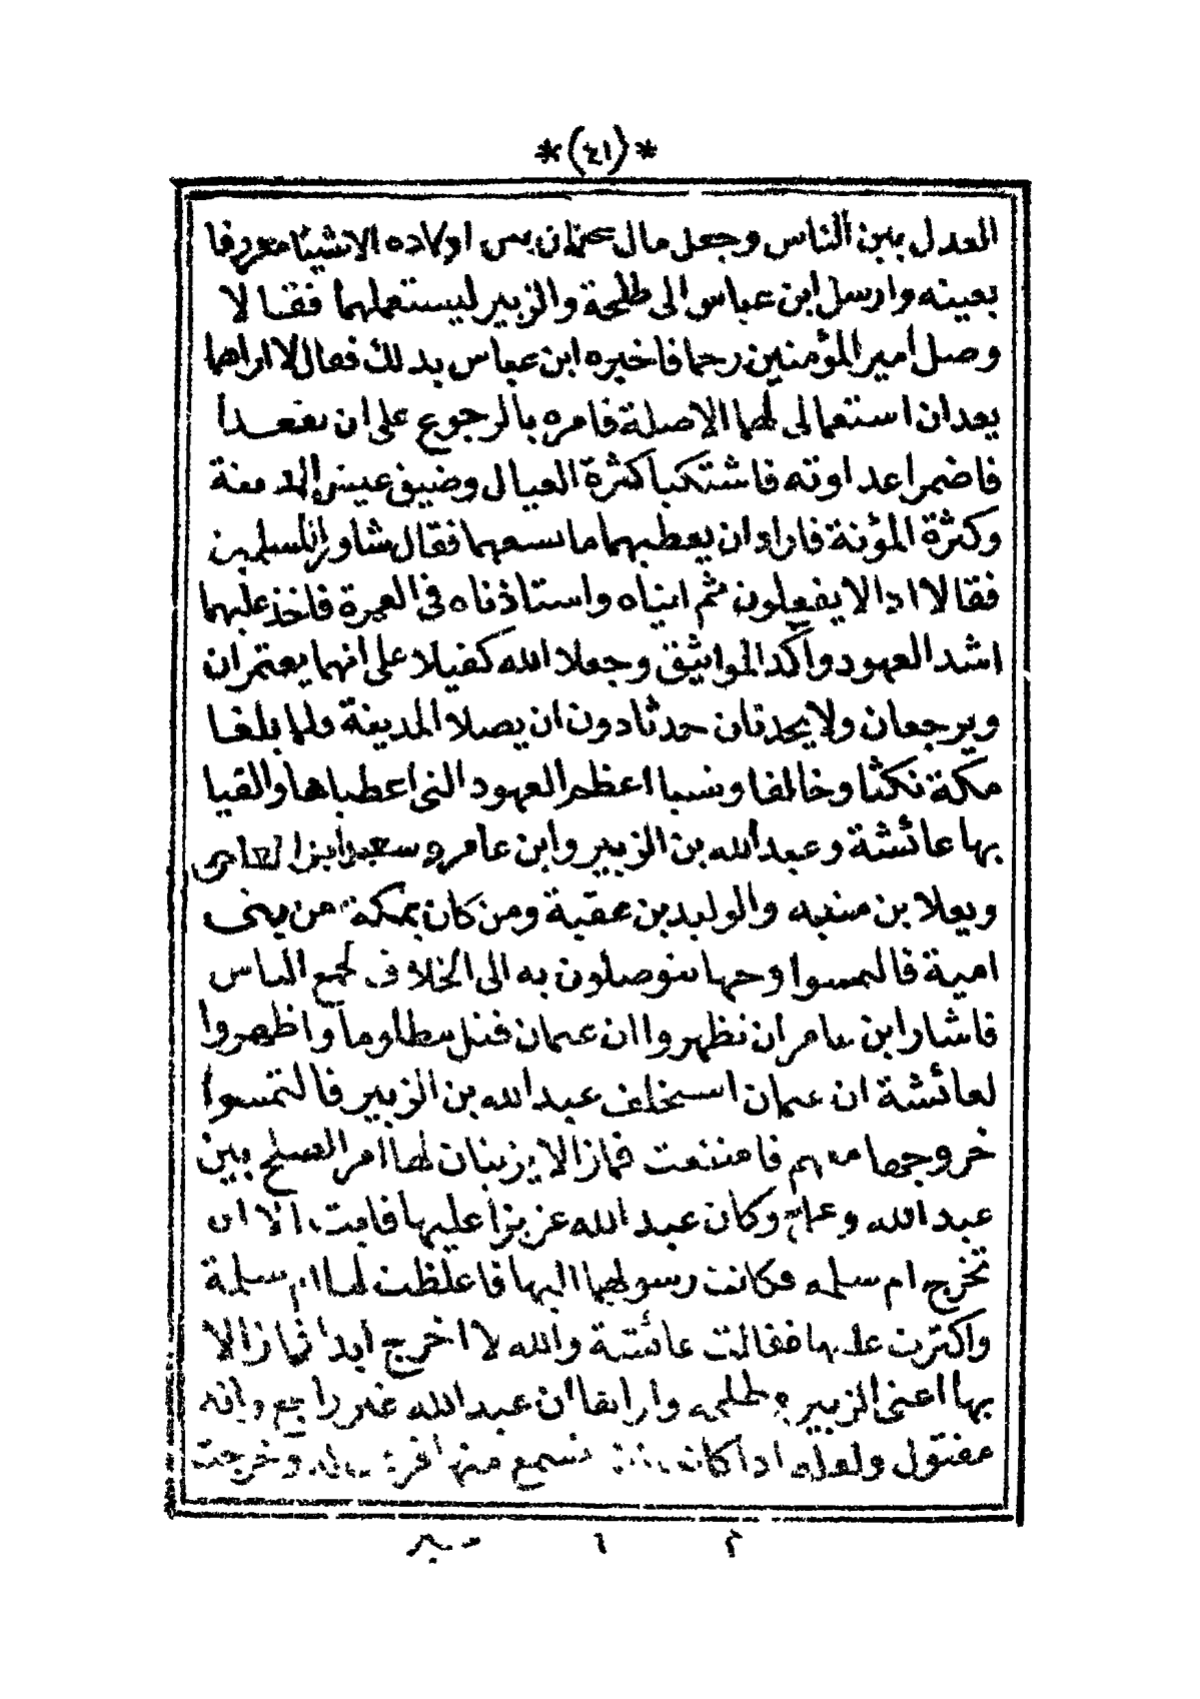 *(٤١)*
العدل بين الناس وجعل مال عثمان بين اولاده الا شيئا معروفا
بعينه وارسل ابن عباس الى طلحة والزبير ليستعملهما فقالا
وصل امير المؤمنين رحما فاخبره ابن عباس بذلك فقال لا اراهما
يعدان استعمالى لهما الا صلة فامره بالرجوع على ان يقعدا
فاضمرا عداوته فاشتكيا كثرة العيال وضيق عيش المدينة
وكثرة المؤنة فاراد ان يعطيهما ما يسعهما فقال شاور المسلمين
فقالا اذا لا يفعلون ثم اتياه واستاذناه فى العمرة فاخذ عليهما
اشد العهود وأكد المواثيق وجعلا الله كفيلا على انهما يعتمران
ويرجعان ولا يحدثان حدثا دون ان يصلا المدينة ولما بلغا
مكة نكثا وخالفا ونسيا اعظم العهود التى اعطياها والقيا
بها عائشة وعبد الله بن الزبير وابن عامر وسعيد ابن العاص
ويعلا بن منبه والوليد بن عقبة ومن كان بمكة من بنى
امية فالتمسوا وجها يتوصلون به الى الخلاف لجمع الناس
فاشار ابن عامر ان نظهروا ان عثمان قتل مظلوما واظهروا
لعائشة ان عثمان استخلف عبد الله بن الزبير فالتمسوا
خروجها معهم فامتنعت فما زالا يزينان لها امر الصلح بين
عبد الله وعلى وكان عبد الله عزيزا عليها فابت الا ان
تخرج ام سلمه فكانت رسولهما اليها فاغلظت لها ام سلمة
واكثرت عليها فقالت عائشة والله لا اخرج ابدا فما زالا
بها اعنى الزبير وطلحه وارابقا ان عبد الله غير راجع وانه
مقتول ولعله اذا كانت تسمع منها وخرجت
٢ ٦ سير